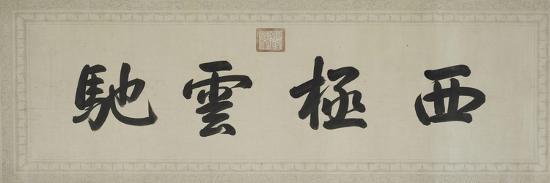 西極雲馳